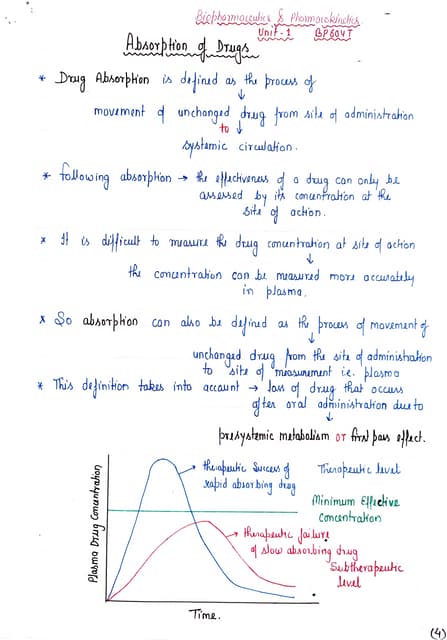 Biopharmaceutics & Pharmacokinetics
Unit-1 BP604T
Absorption of Drugs
* Drug Absorption is defined as the process of
↓
movement of unchanged drug from site of administration
to ↓
systemic circulation.
* following absorption → the effectiveness of a drug can only be
assessed by its concentration at the
site of action.
* It is difficult to measure the drug concentration at site of action
↓
the concentration can be measured more accurately
in plasma.
* So absorption can also be defined as the process of movement of
↓
unchanged drug from the site of administration
to site of measurement i.e. plasma
* This definition takes into account → loss of drug that occurs
after oral administration due to
↓
presystemic metabolism or first pass effect.
Plasma Drug Concentration
therapeutic success of
rapid absorbing drug
Therapeutic level
Minimum Effective
Concentration
therapeutic failure
of slow absorbing drug
Subtherapeutic
level
Time.
(4)